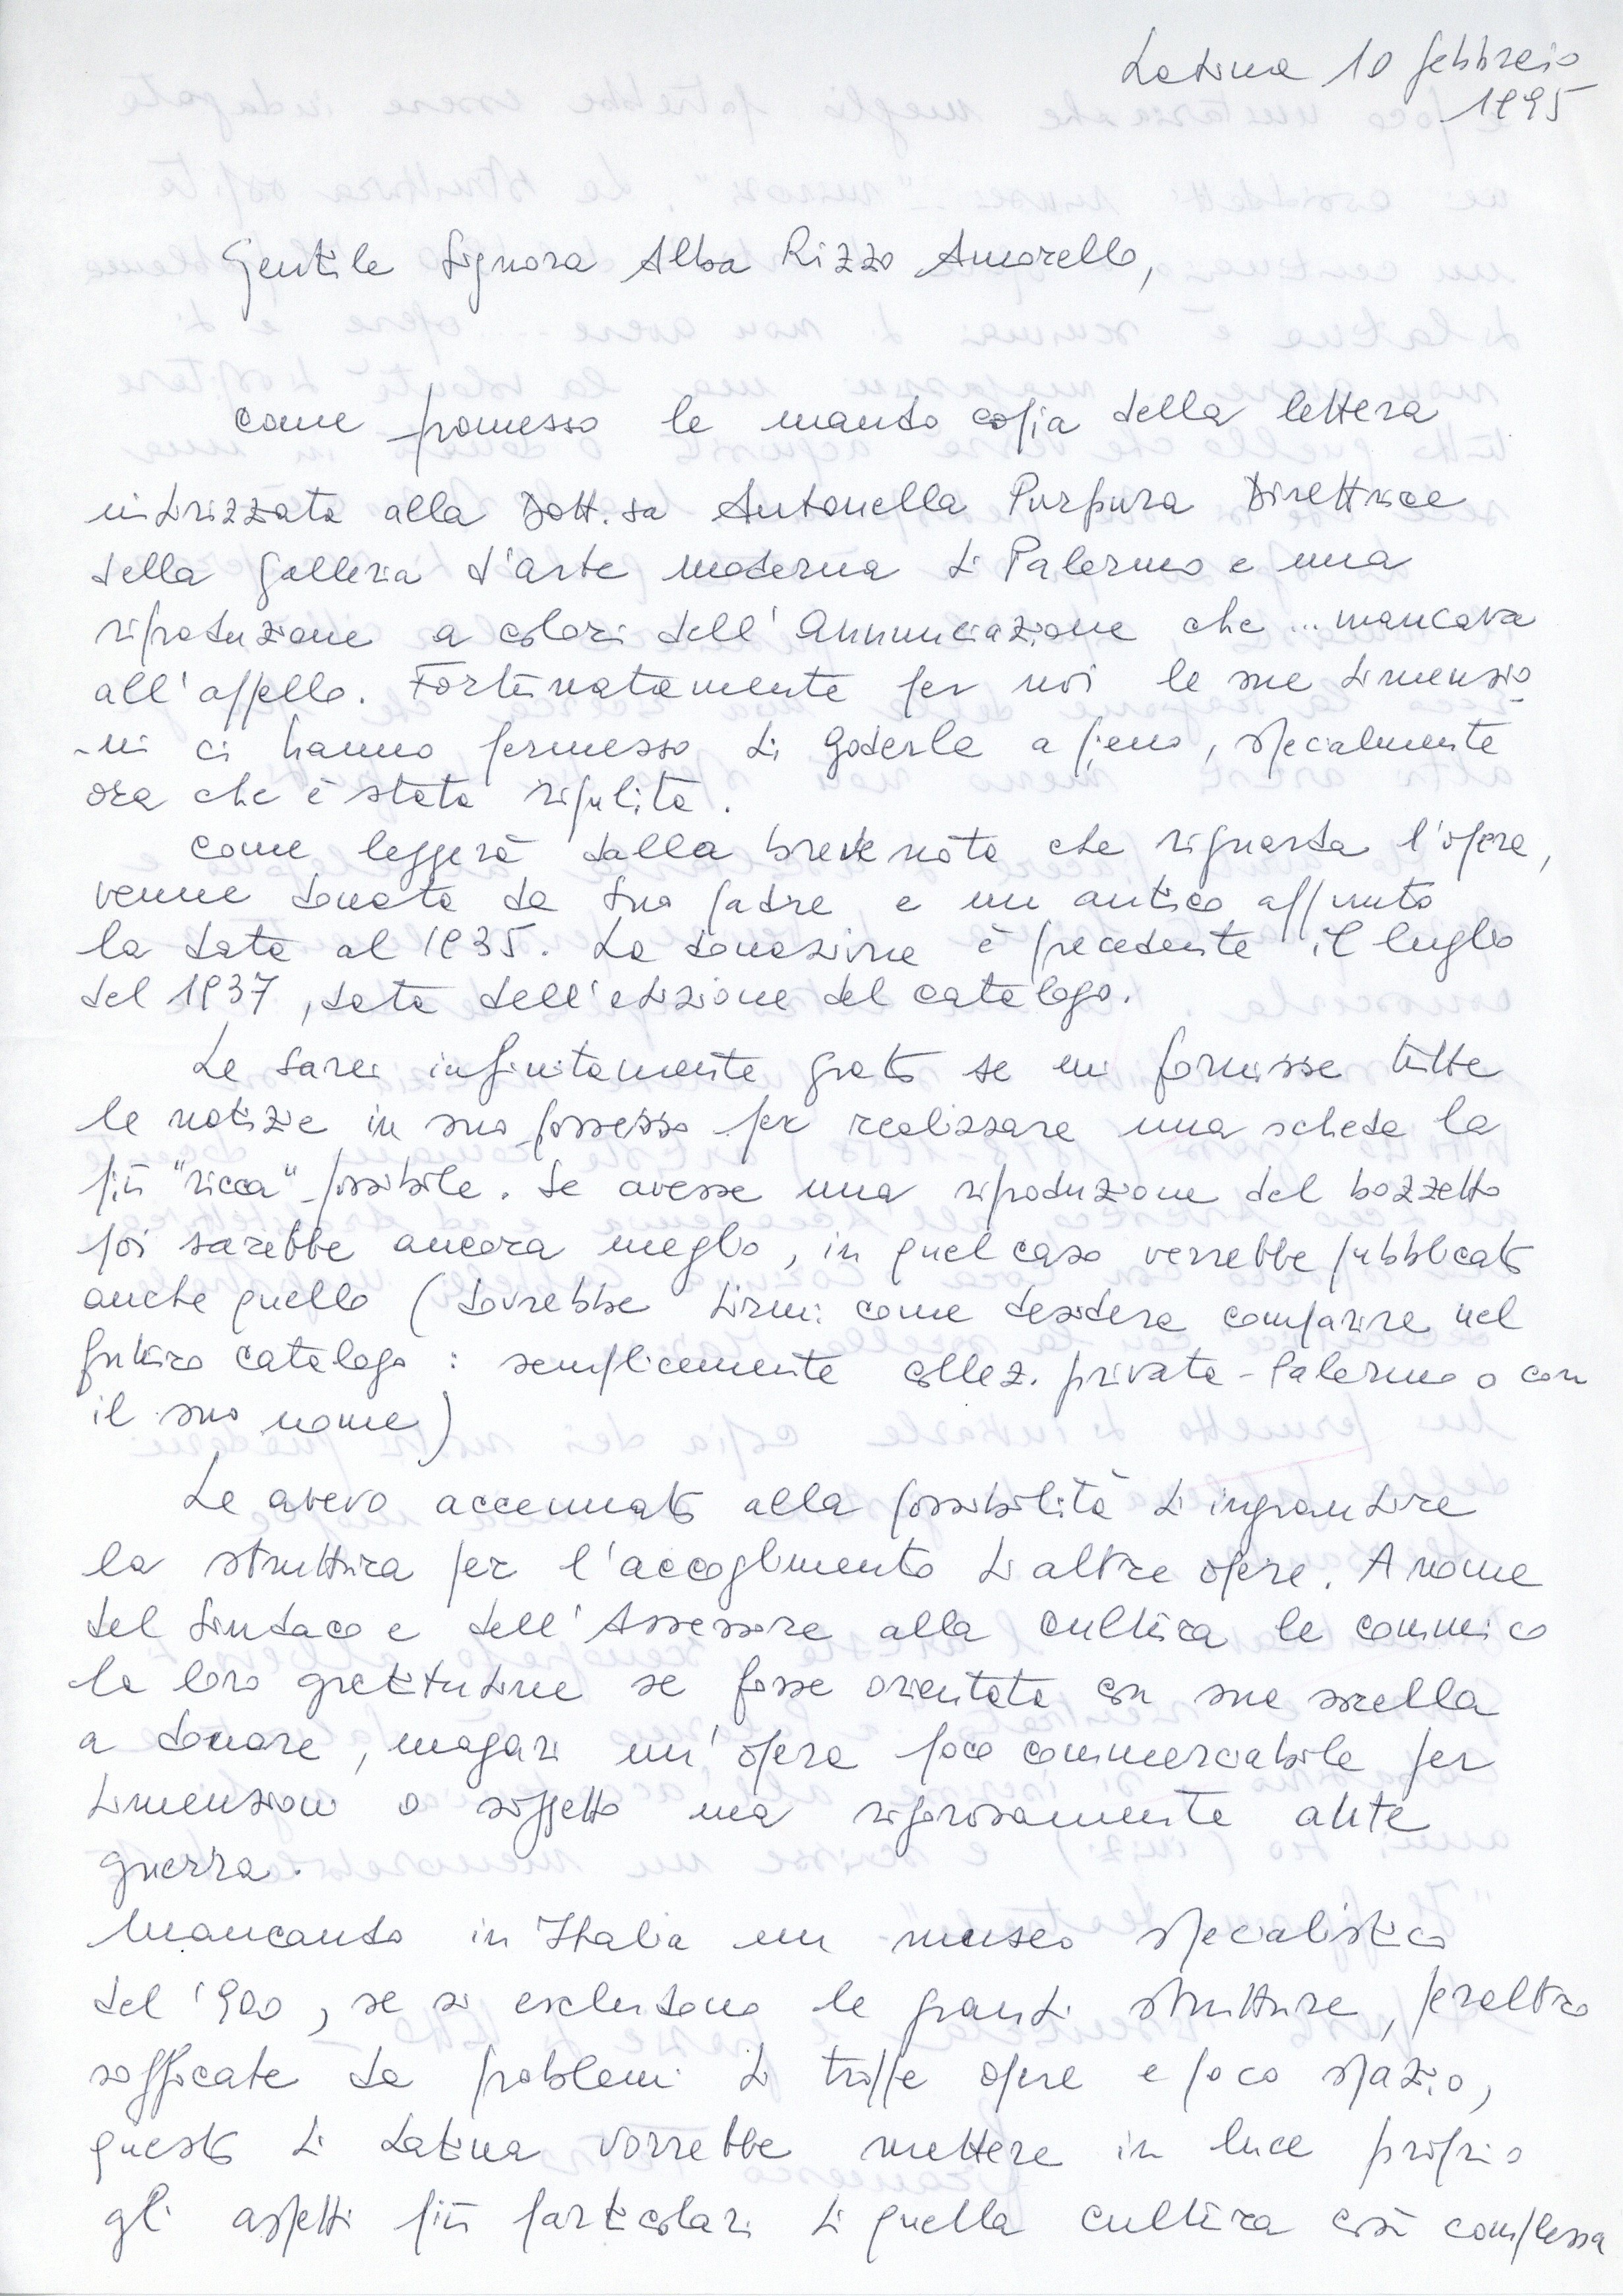 Latina 10 febbraio
1995
Gentile Signora Alba Rizzo Amorello,
come promesso le mando copia della lettera
indirizzata alla Dott.sa Antonella Purpura Direttrice
della Galleria d'arte moderna di Palermo e una
riproduzione a colori dell'Annunciazione che ... mancava
all'appello. Fortunatamente per noi le sue dimensio
-ni ci hanno permesso di goderla a pieno, specialmente
ora che è stata ripulita.
Come leggerà dalla breve nota che riguarda l'opera,
venne donata da Suo padre e un antico appunto
la data al 1935. La donazione è precedente il luglio
del 1937, data dell'edizione del catalogo.
Le sarei infinitamente grato se mi fornisse tutte
le notizie in suo possesso per realizzare una scheda la
più "ricca" possibile. Se avesse una riproduzione del bozzetto
poi sarebbe ancora meglio, in quel caso verrebbe pubblicato
anche quello (dovrebbe dirmi come desidera comparire nel
futuro catalogo: semplicemente collez. privata - Palermo o con
il suo nome)
Le avevo accennato alla possibilità di ingrandire
la struttura per l'accoglimento di altre opere. A nome
del Sindaco e dell'Assessore alla cultura le comunico
la loro gratitudine se fosse orientata con sua sorella
a donare, magari un'opera poco commerciabile per
dimensioni o soggetto ma rigorosamente ante
guerra.
Mancando in Italia un museo specialistico
del '900, se si escludono le grandi strutture, peraltro
soffocate da problemi di troppe opere e poco spazio,
questo di Latina vorrebbe mettere in luce proprio
gli aspetti più particolari di quella cultura così complessa